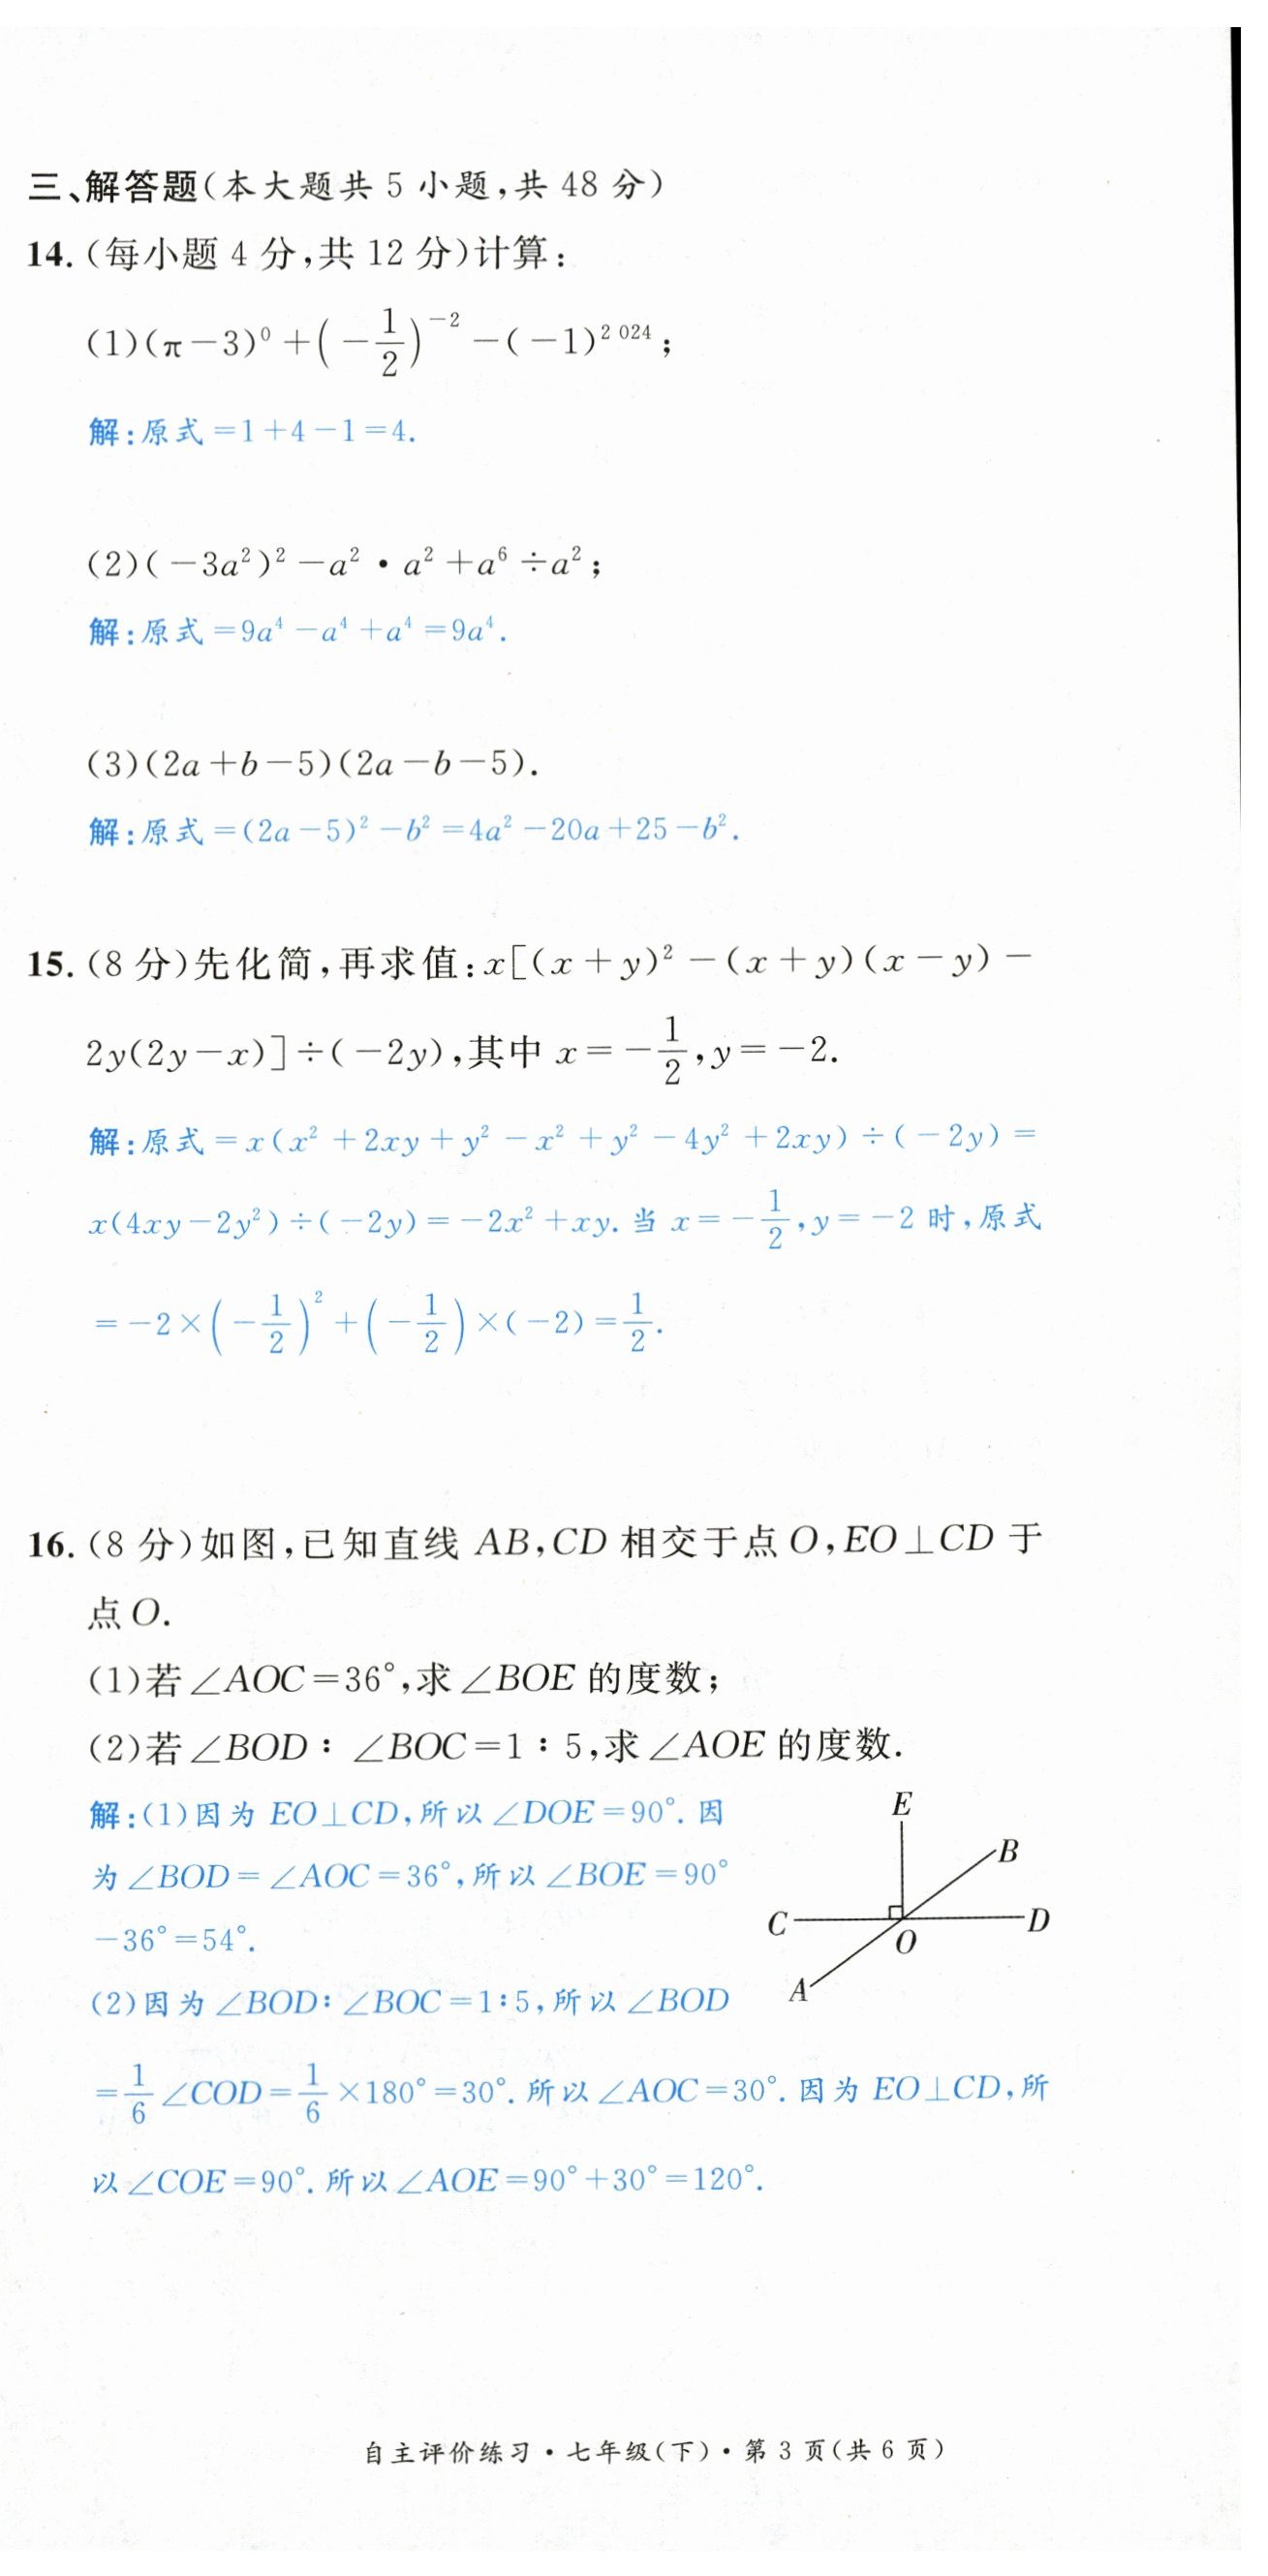 三、解答题(本大题共 5 小题,共 48 分)
14.(每小题 4 分,共 12 分)计算:
(1)(π-3)⁰+(-1/2)⁻²-(-1)²⁰²⁴;
解:原式=1+4-1=4.
(2)(-3a²)²-a²·a²+a⁶÷a²;
解:原式=9a⁴-a⁴+a⁴=9a⁴.
(3)(2a+b-5)(2a-b-5).
解:原式=(2a-5)²-b²=4a²-20a+25-b².
15.(8 分)先化简,再求值:x[(x+y)²-(x+y)(x-y)-
2y(2y-x)]÷(-2y),其中 x=-1/2,y=-2.
解:原式=x(x²+2xy+y²-x²+y²-4y²+2xy)÷(-2y)=
x(4xy-2y²)÷(-2y)=-2x²+xy. 当 x=-1/2,y=-2 时,原式
=-2×(-1/2)²+(-1/2)×(-2)=1/2.
16.(8 分)如图,已知直线 AB,CD 相交于点 O,EO⊥CD 于
点 O.
(1)若∠AOC=36°,求∠BOE 的度数;
(2)若∠BOD:∠BOC=1:5,求∠AOE 的度数.
解:(1)因为 EO⊥CD,所以∠DOE=90°. 因
为∠BOD=∠AOC=36°,所以∠BOE=90°
-36°=54°.
(2)因为∠BOD:∠BOC=1:5,所以∠BOD
=1/6∠COD=1/6×180°=30°. 所以∠AOC=30°. 因为 EO⊥CD,所
以∠COE=90°. 所以∠AOE=90°+30°=120°.
E
B
C
D
O
A
自主评价练习·七年级(下)·第 3 页(共 6 页)